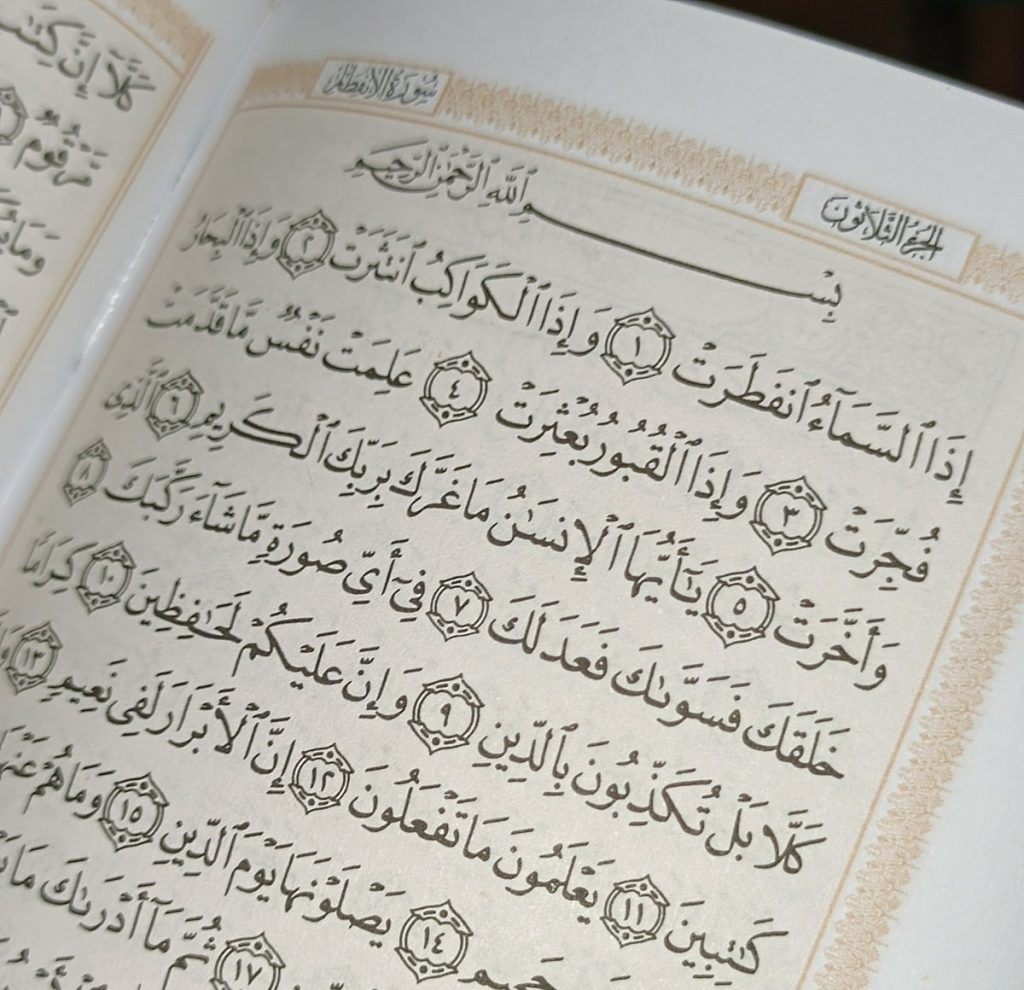 الجُزْءُ الثَّلَاثُونَ
سُورَةُ الِانفِطَارِ
بِسْمِ ٱللَّهِ ٱلرَّحْمَٰنِ ٱلرَّحِيمِ
إِذَا ٱلسَّمَآءُ ٱنفَطَرَتْ ١ وَإِذَا ٱلْكَوَاكِبُ ٱنتَثَرَتْ ٢ وَإِذَا ٱلْبِحَارُ
فُجِّرَتْ ٣ وَإِذَا ٱلْقُبُورُ بُعْثِرَتْ ٤ عَلِمَتْ نَفْسٌ مَّا قَدَّمَتْ
وَأَخَّرَتْ ٥ يَٰٓأَيُّهَا ٱلْإِنسَٰنُ مَا غَرَّكَ بِرَبِّكَ ٱلْكَرِيمِ ٦ ٱلَّذِى
خَلَقَكَ فَسَوَّىٰكَ فَعَدَلَكَ ٧ فِىٓ أَىِّ صُورَةٍ مَّا شَآءَ رَكَّبَكَ ٨
كَلَّا بَلْ تُكَذِّبُونَ بِٱلدِّينِ ٩ وَإِنَّ عَلَيْكُمْ لَحَٰفِظِينَ ١٠ كِرَامًا
كَٰتِبِينَ ١١ يَعْلَمُونَ مَا تَفْعَلُونَ ١٢ إِنَّ ٱلْأَبْرَارَ لَفِى نَعِيمٍ ١٣
جَحِيمٍ ١٤ يَصْلَوْنَهَا يَوْمَ ٱلدِّينِ ١٥ وَمَا هُمْ عَنْهَا
١٧ ثُمَّ مَآ أَدْرَىٰكَ مَا
كَلَّآ إِنَّ
مَّرْقُومٌ